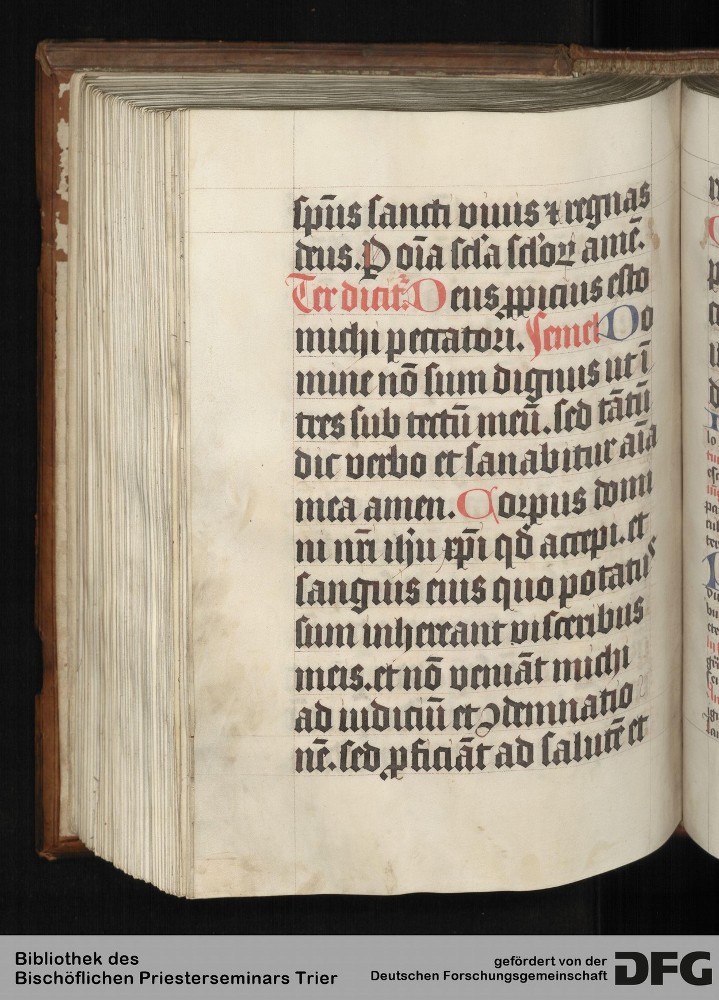 sp̄us sancti viuis ⁊ regnas
deus. P oīa sc̄la sc̄lor̄ amē.
Ter dicit̄. Deus ꝓpicius esto
michi peccatori. Semel Do
mine nō sum dignus ut ī
tres sub tectū meū. sed tātū
dic verbo et sanabitur aīa
mea amen. Corpus domi
ni nr̄i ihū xp̄i qd̄ accepi. et
sanguis eius quo potatus
sum inhereant visceribus
meis. et nō veniāt michi
ad iudiciū et ꝯdemnatio
nē. sed ꝓficiāt ad salutē et
Bibliothek des
Bischöflichen Priesterseminars Trier
gefördert von der
Deutschen Forschungsgemeinschaft
DFG